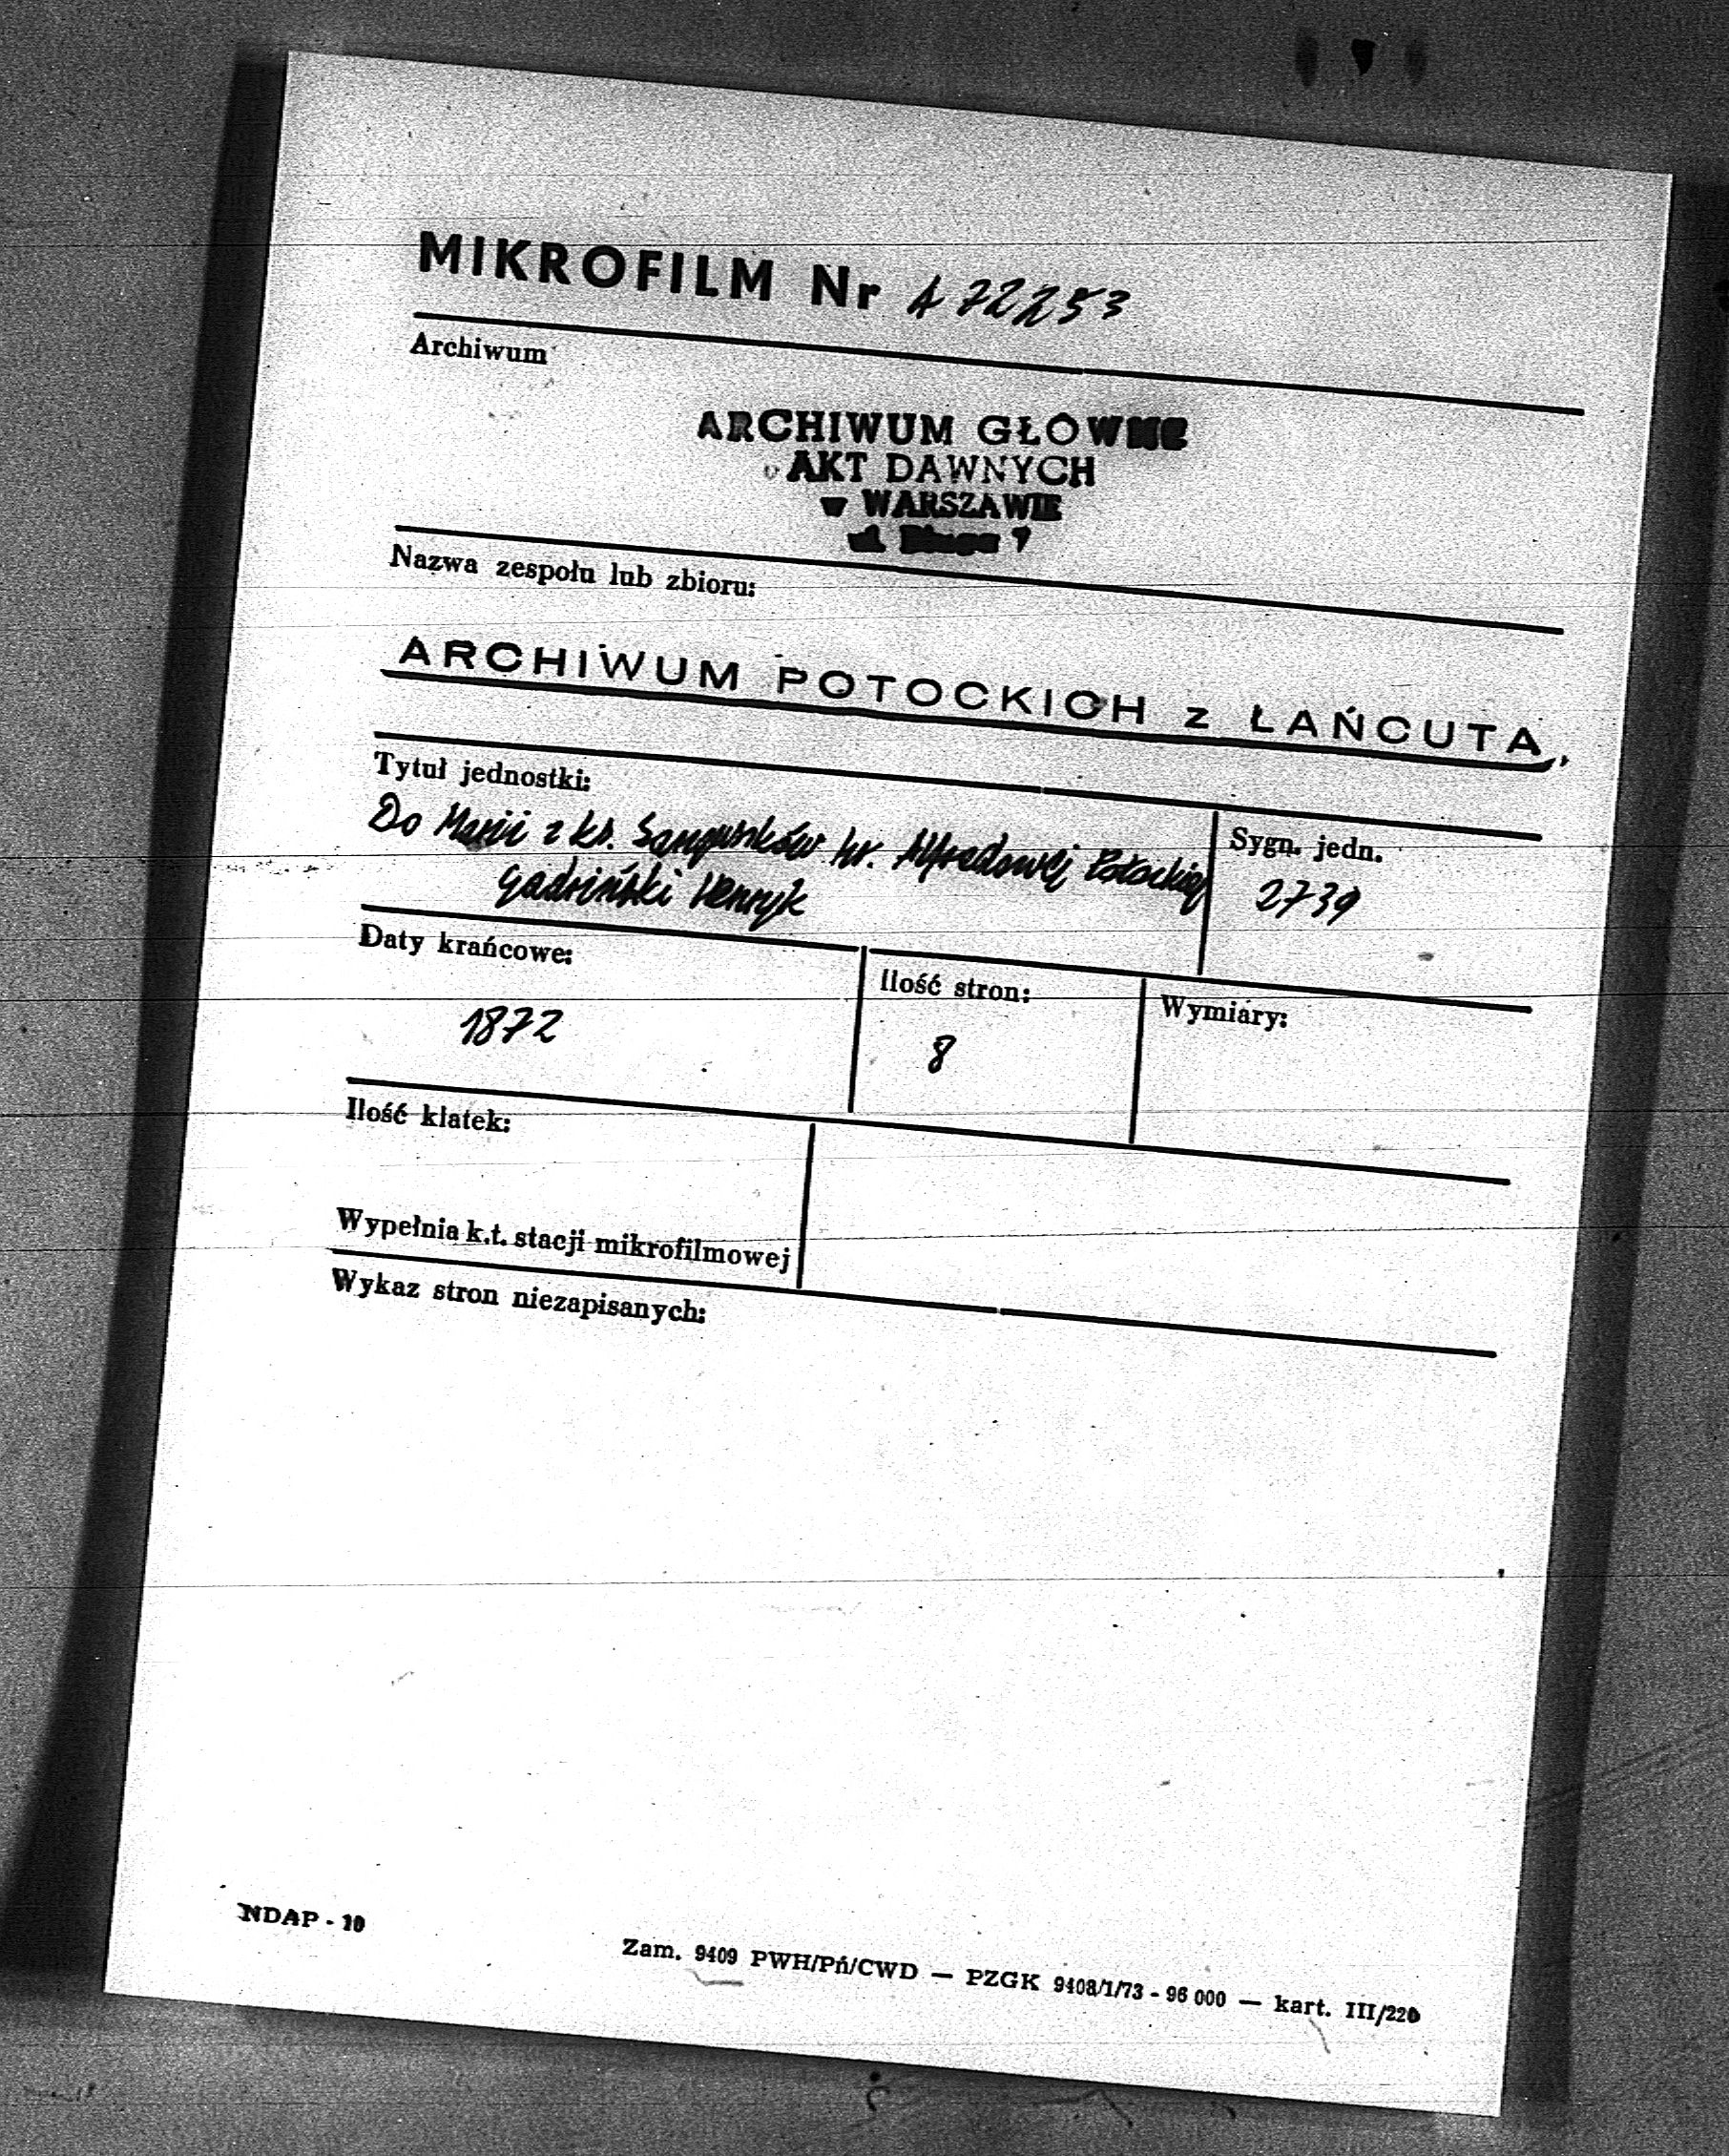 MIKROFILM Nr A 72253
Archiwum
ARCHIWUM GŁÓWNE
AKT DAWNYCH
w WARSZAWIE
ul. Długa 7
Nazwa zespołu lub zbioru:
ARCHIWUM POTOCKICH z ŁAŃCUTA,
Tytuł jednostki:
Do Marii z ks. Sanguszków hr. Alfredowej Potockiej
Gadziński Henryk
Sygn. jedn.
2739
Daty krańcowe:
1872
Ilość stron:
8
Wymiary:
Ilość klatek:
Wypełnia k.t. stacji mikrofilmowej
Wykaz stron niezapisanych:
NDAP - 10
Zam. 9409 PWH/Pń/CWD — PZGK 9408/1/73 - 96 000 — kart. III/220